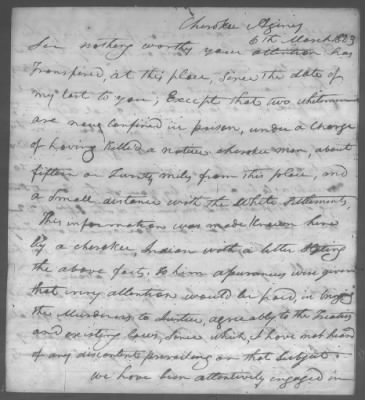 Cherokee Agency
6th March 1823
Sir nothing worthy your attention has
transpired, at this place, since the date of
my last to you; Except that two whitemen
are now confined in prison, under a Charge
of having Killed a native cherokee man, about
fifteen or twenty miles from this place, and
a Small distance with the White Settlements,
This information was made Known here
by a cherokee, Indian with a letter Stating
the above facts. to him assurances were given
that every attention would be paid, in bringing
the Murderers to Justice, agreeably to the Treaties
and existing laws, Since which, I have not heard
of any discontents prevailing on that Subject.
we have been attentively engaged in